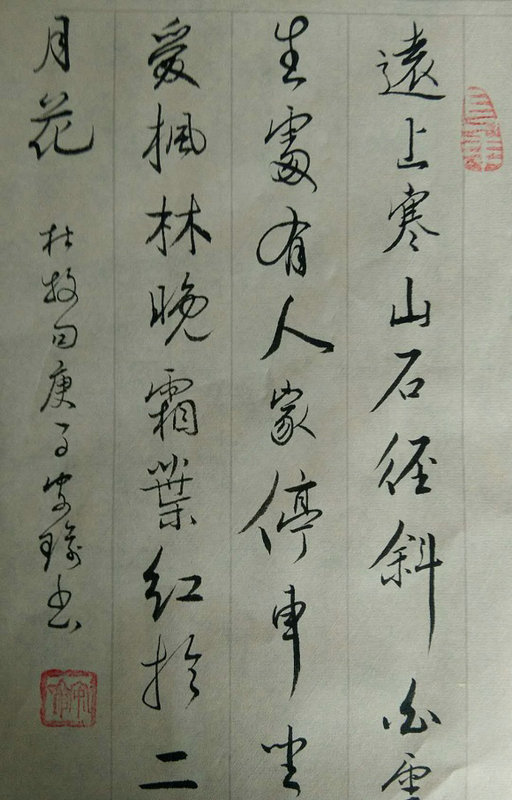 遠上寒山石径斜白雲
生處有人家停車坐
愛楓林晚霜葉紅於二
月花
杜牧句庚子安璐书